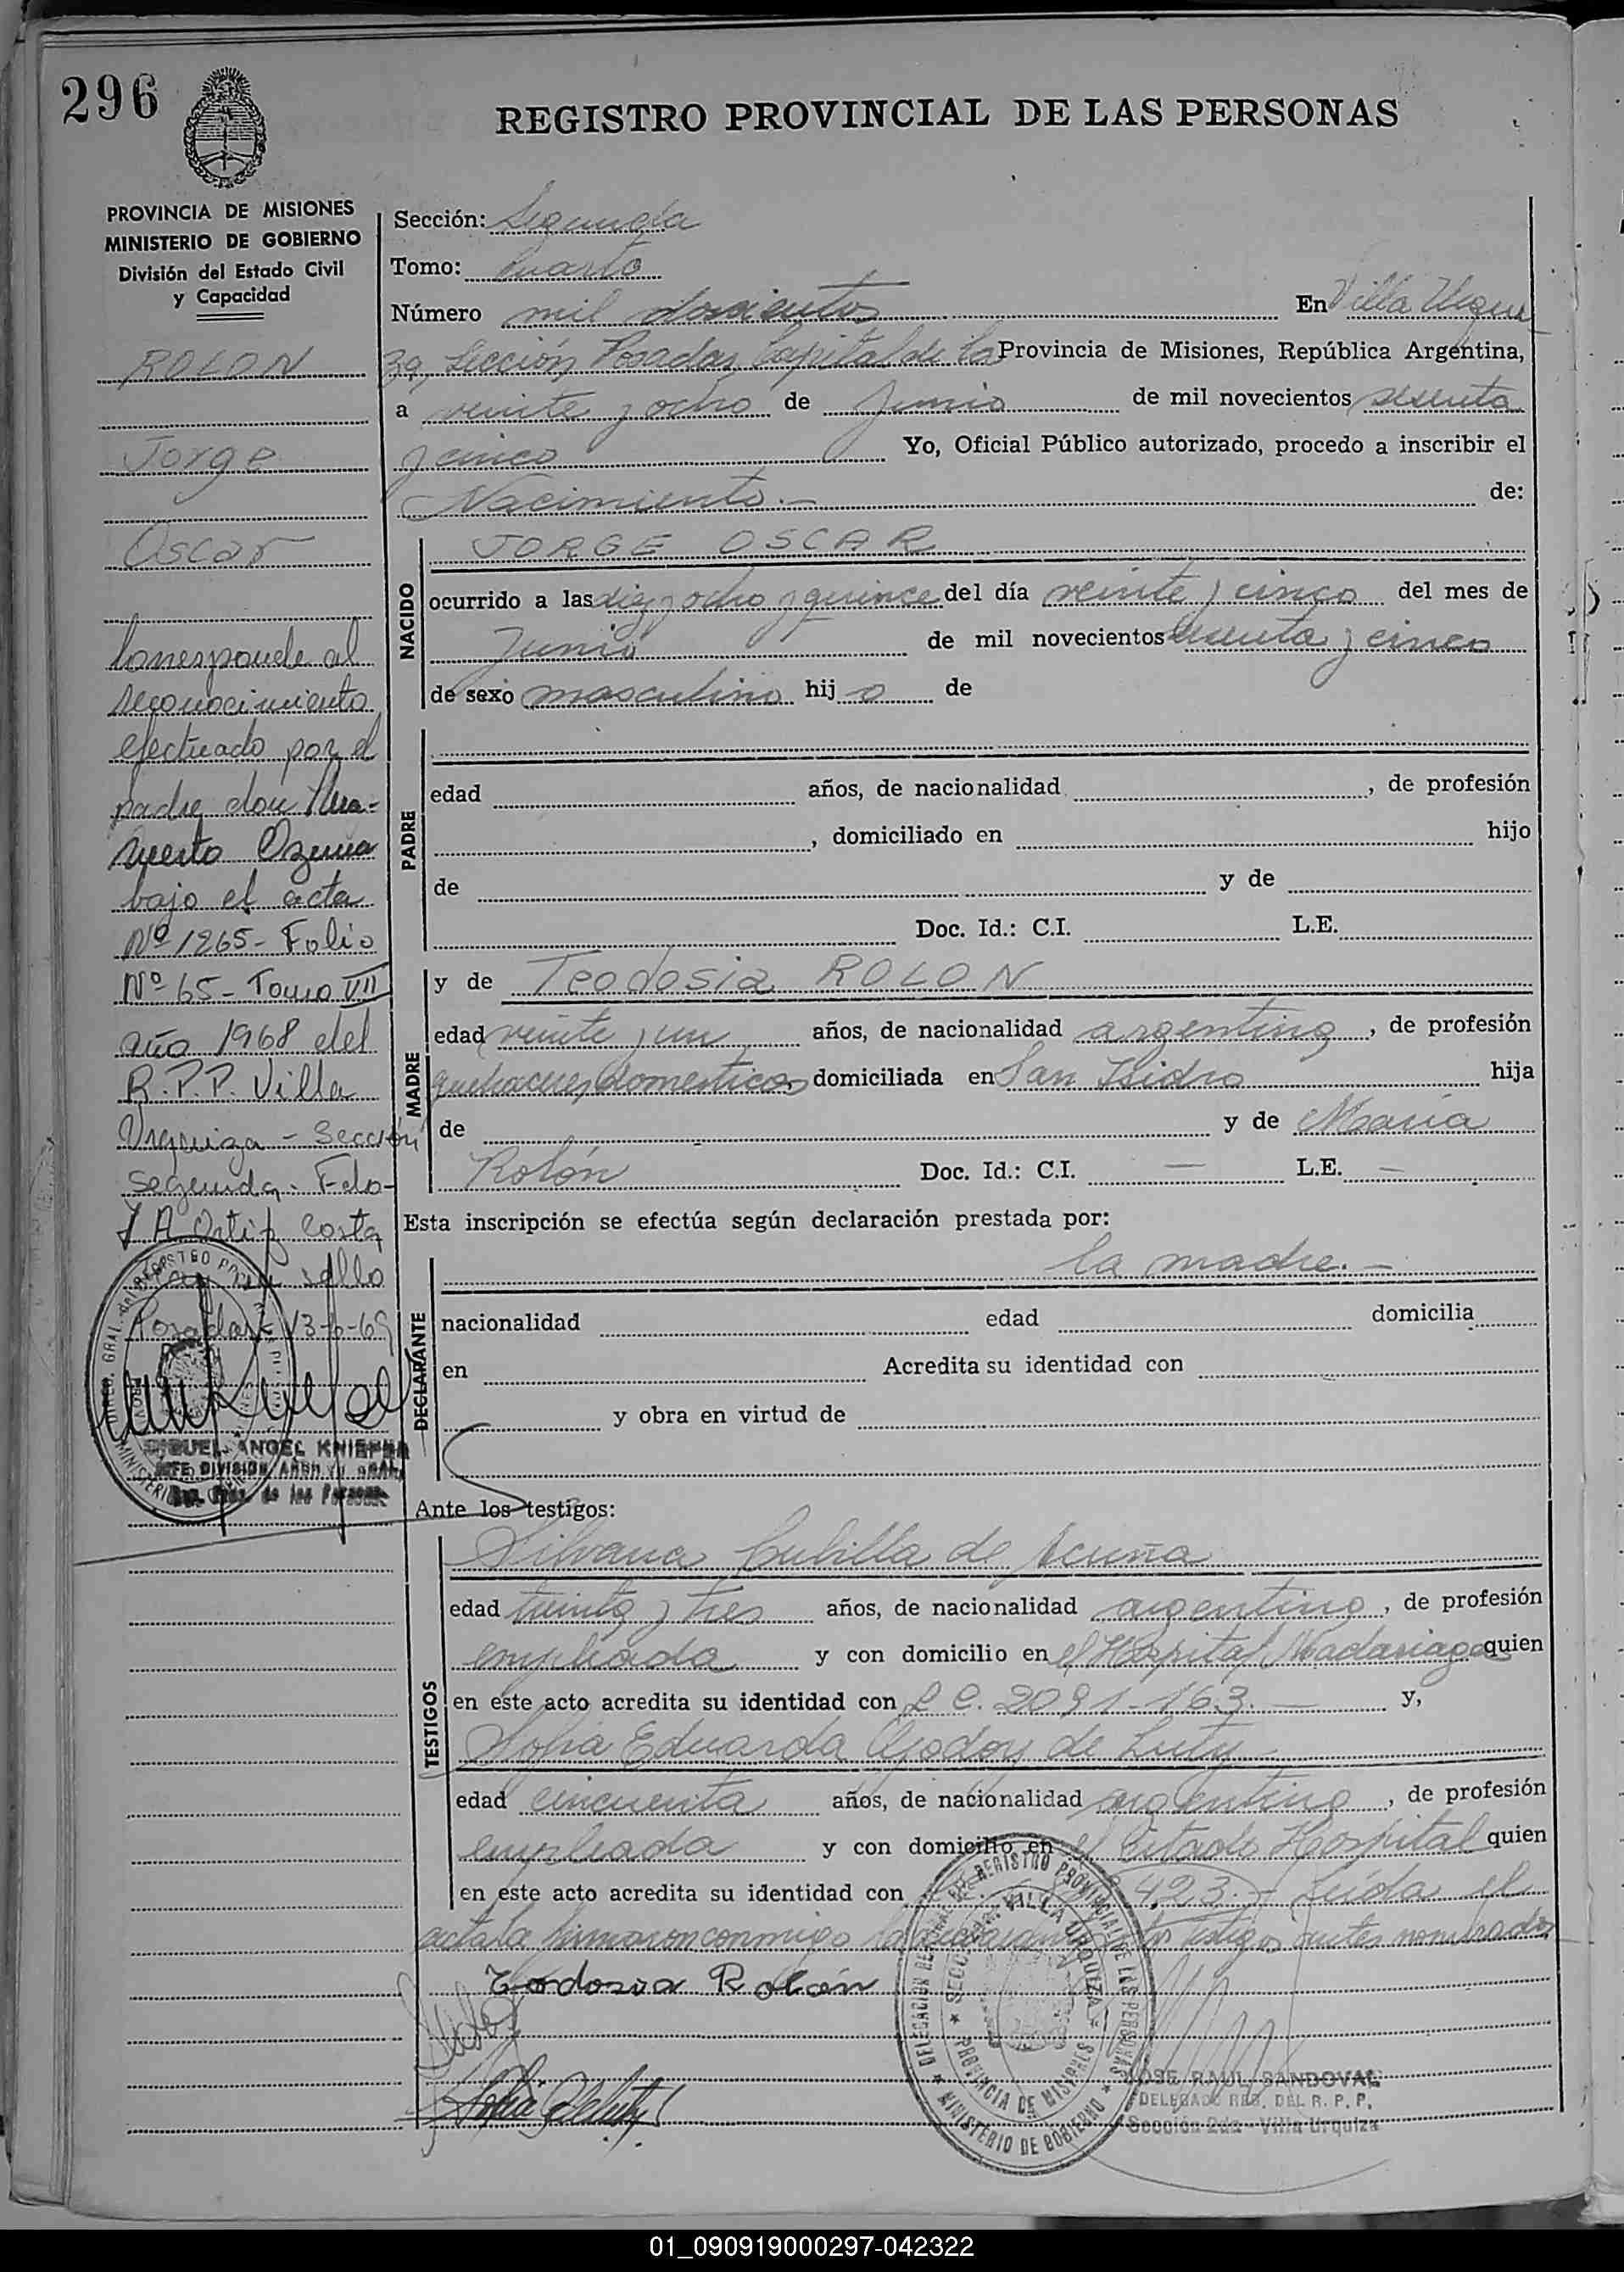 296
REGISTRO PROVINCIAL DE LAS PERSONAS
PROVINCIA DE MISIONES
MINISTERIO DE GOBIERNO
División del Estado Civil
y Capacidad
ROLON
Jorge
Oscar
Corresponde al
reconocimiento
efectuado por el
padre don
Ozuna
bajo el acta
Nº 1265 - Folio
Nº 65 - Tomo VII
año 1968 del
R.P.P. Villa
Urquiza - Sección
Segunda - Fdo
J A Ortiz Costa
sello
Posadas 13-6-69
MIGUEL ANGEL
JEFE DIVISION
de las Personas
Sección: Segunda
Tomo: Cuarto
Número mil doscientos En Villa Urqui
za, Sección Posadas Capital de la Provincia de Misiones, República Argentina,
a veinte y ocho de Junio de mil novecientos sesenta
y cinco Yo, Oficial Público autorizado, procedo a inscribir el
Nacimiento.- de:
NACIDO
JORGE OSCAR
ocurrido a las diez y ocho y quince del día veinte y cinco del mes de
Junio de mil novecientos sesenta y cinco
de sexo masculino hij o de
PADRE
edad años, de nacionalidad , de profesión
, domiciliado en hijo
de y de
Doc. Id.: C.I. L.E.
MADRE
y de Teodosia ROLON
edad veinte y un años, de nacionalidad argentina, de profesión
quehaceres domesticos domiciliada en San Isidro hija
de y de María
Rolón Doc. Id.: C.I. — L.E. —
Esta inscripción se efectúa según declaración prestada por:
DECLARANTE
la madre.-
nacionalidad edad domicilia
en Acredita su identidad con
y obra en virtud de
Ante los testigos:
TESTIGOS
Silvana Cubilla de Acuña
edad treinta y tres años, de nacionalidad argentina, de profesión
empleada y con domicilio en el Hospital Madariaga quien
en este acto acredita su identidad con L C. 2091-163.— y,
Sofia Eduarda Godoy de Luty
edad cincuenta años, de nacionalidad argentina, de profesión
empleada y con domicilio en el citado Hospital quien
en este acto acredita su identidad con 423.- Leída el
acta la firmaron conmigo la testigos antes nombrados
Teodosia Rolón
DELEGACION REGISTRO PROVINCIAL DE LAS PERSONAS
SECCION VILLA URQUIZA
PROVINCIA DE MISIONES
MINISTERIO DE GOBIERNO
JOSE RAUL SANDOVAL
DELEGADO REG. DEL R. P. P.
Sección 2da - Villa Urquiza
01_090919000297-042322